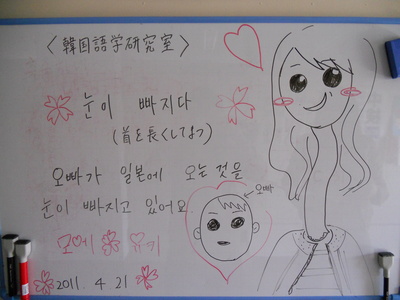 〈韓国語学研究室〉
눈이 빠지다
(首を長くしなう)
오빠가 일본에 오는 것을
눈이 빠지고 있어요
오빠
모에 유기
2011. 4 21